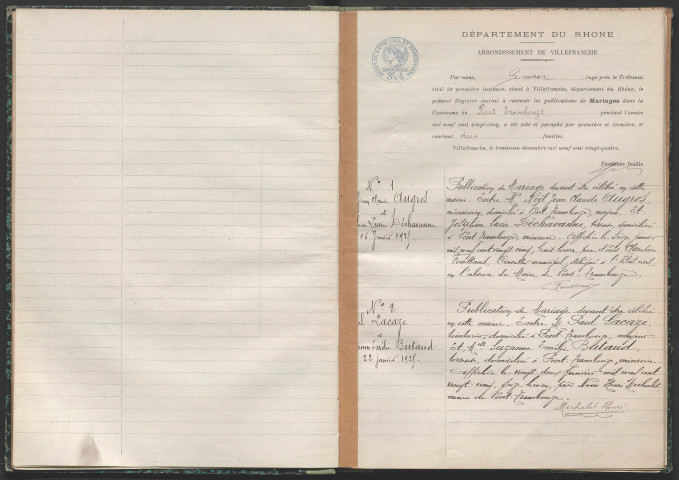 DÉPARTEMENT DU RHONE
ARRONDISSEMENT DE VILLEFRANCHE
Par nous, Juge près le Tribunal
civil de première instance, séant à Villefranche, département du Rhône, le
présent Registre destiné à recevoir les publications de Mariages dans la
Commune de Pont Trambouze pendant l'année
mil neuf cent vingt-cinq, a été coté et paraphé par première et dernière, et
contient deux feuilles.
Villefranche, le trente-un décembre mil neuf cent vingt-quatre.
Première feuille
N° 1
Jean Claude Augros
et
Lucie Déchavanne
16 Janvier 1925
Publication de Mariage devant être célébré en cette
mairie. Entre Mr Noël Jean Claude Augros,
domicilié à Pont Trambouze, majeur Et
Joséphine Lucie Déchavanne, domiciliée
à Pont Trambouze, mineure. Affichée le seize janvier
mil neuf cent vingt cinq, huit heures, par Nous
Conseiller municipal, délégué à l'Etat civil
en l'absence du Maire de Pont-Trambouze.
N° 2
Lacaze
et
Emilie Butaud
22 janvier 1925
Publication de Mariage devant être célébré
en cette mairie. Entre M. Paul Lacaze,
domicilié à Pont Trambouze, majeur
Et, Mlle Suzanne Emilie Butaud,
domiciliée à Pont Trambouze, mineure
affichée le vingt deux janvier mil neuf cent
vingt cinq, heures, par Nous Henri Machalot
maire de Pont Trambouze.
Machalot Henri